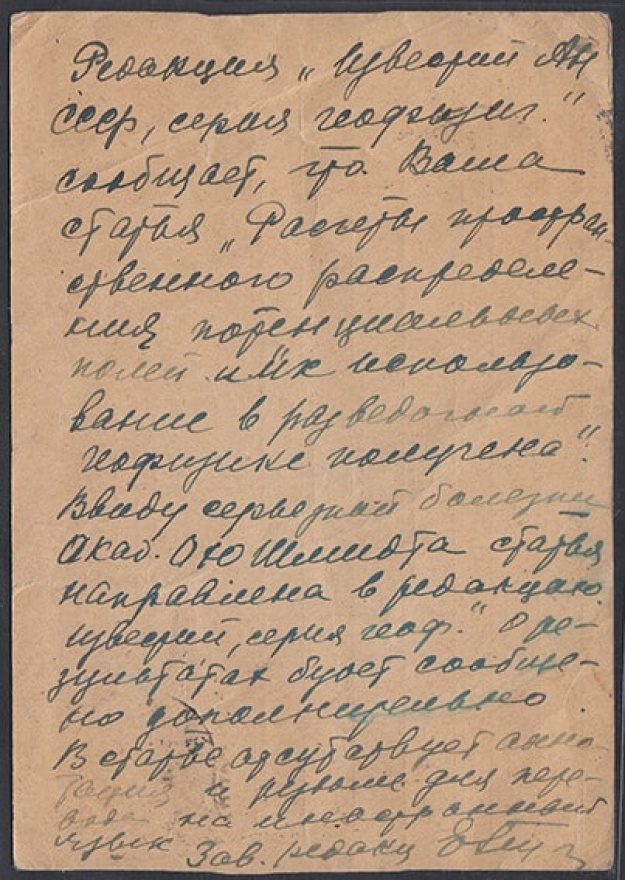 Редакция „Известий АН
СССР, серия геофизич."
сообщает, что Ваша
статья „Расчеты простран-
ственного распределе-
ния потенциальных
полей и их использо-
вание в разведочной
геофизике получена".
Ввиду серьезной болезни
Акад. О Ю Шмидта статья
направлена в редакцию
Известий, серия геоф." О ре-
зультатах будет сообще-
но дополнительно.
В статье отсутствует анно-
тация и резюме для пере-
вода на иностранный
язык Зав. редакц